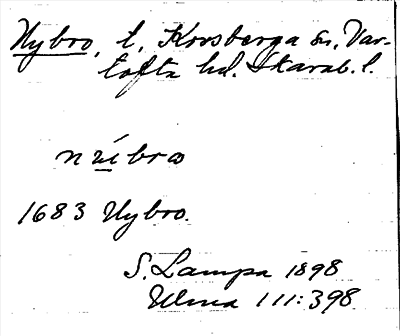 Nybro, t. Korsberga sn. Var-
tofta hd. Skarab. l.
nẁíbrω
1683 Nybro.
S. Lampa 1898
Ulma 111:398